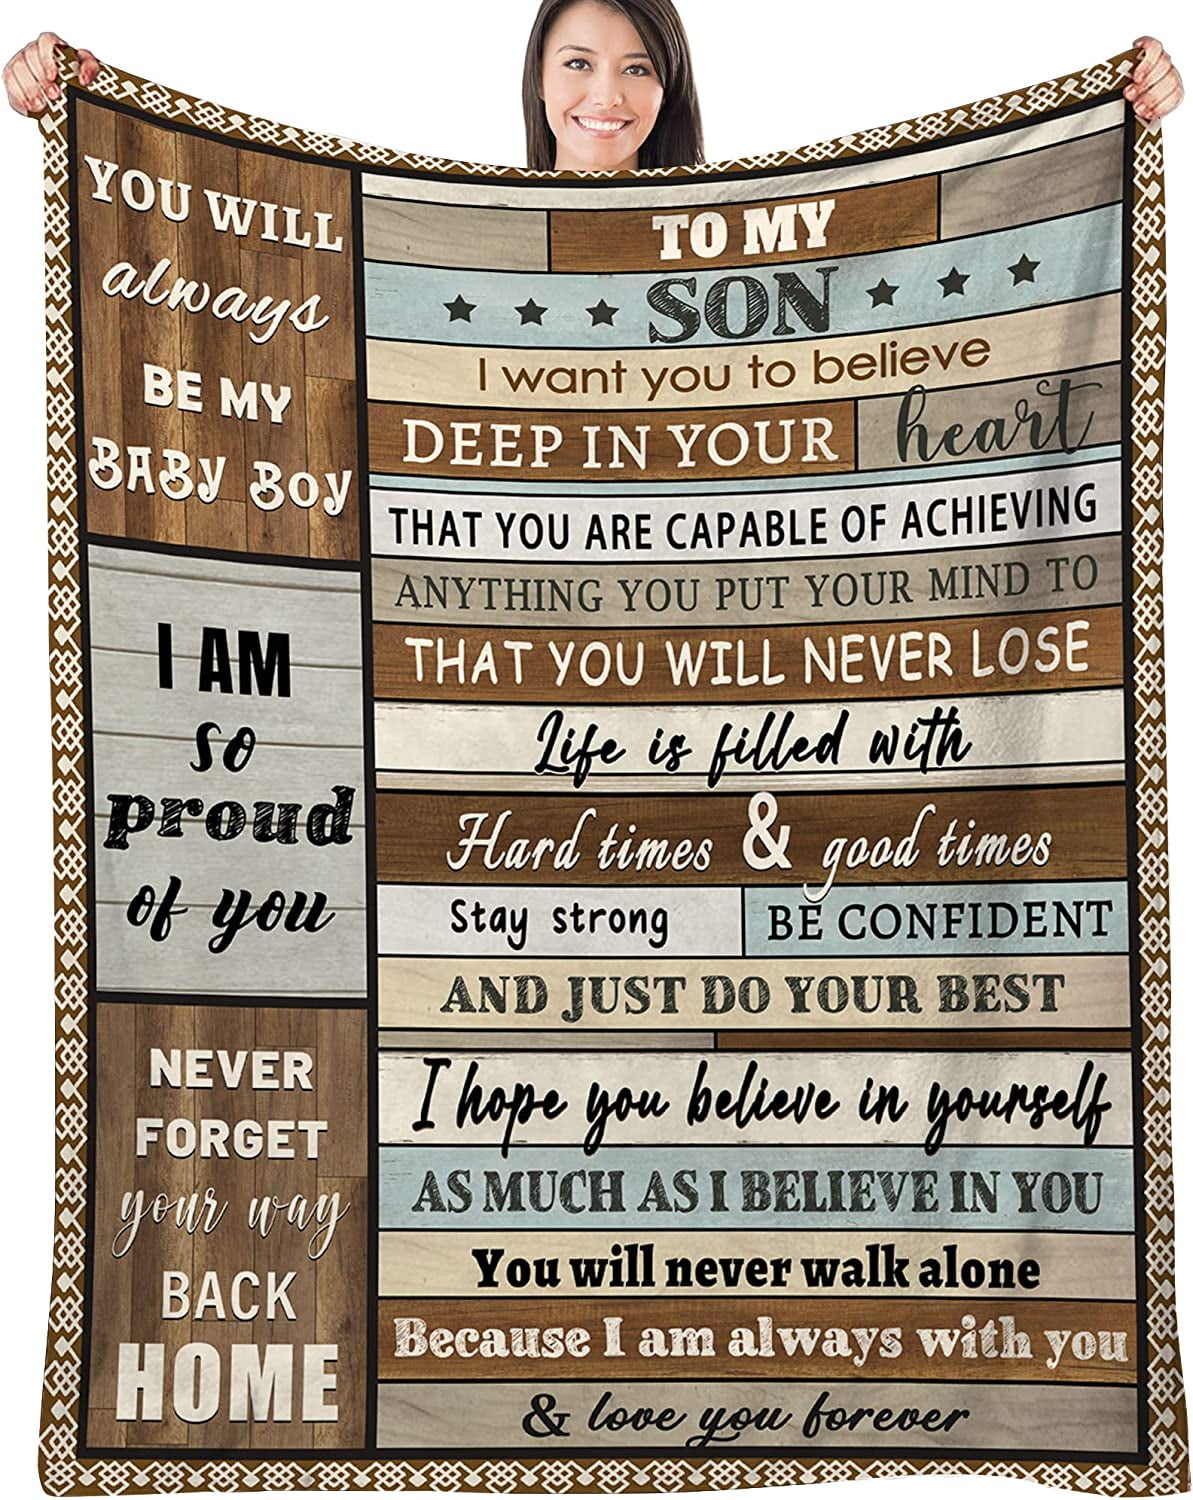 YOU WILL
always
BE MY
BABY BOY
I AM
so
proud
of you
NEVER
FORGET
your way
BACK
HOME
TO MY
SON
I want you to believe
DEEP IN YOUR heart
THAT YOU ARE CAPABLE OF ACHIEVING
ANYTHING YOU PUT YOUR MIND TO
THAT YOU WILL NEVER LOSE
Life is filled with
Hard times & good times
Stay strong BE CONFIDENT
AND JUST DO YOUR BEST
I hope you believe in yourself
AS MUCH AS I BELIEVE IN YOU
You will never walk alone
Because I am always with you
& love you forever